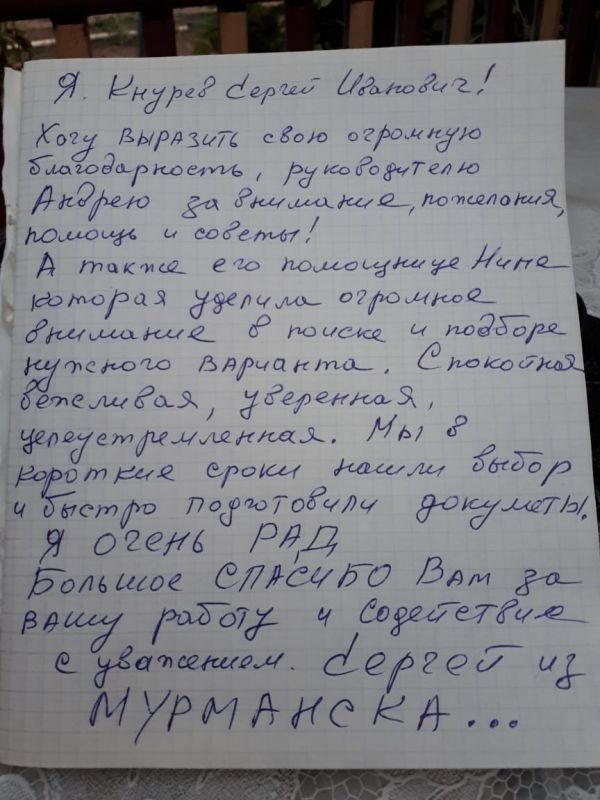 Я. Кнурев Сергей Иванович!
Хочу выразить свою огромную
благодарность, руководителю
Андрею за внимание, пожелания,
помощь и советы!
А также его помощнице Нине
которая уделила огромное
внимание в поиске и подборе
нужного варианта. Спокойная
вежливая, уверенная,
целеустремленная. Мы в
короткие сроки нашли выбор
и быстро подготовили докуметы.
Я ОЧЕНЬ РАД
Большое СПАСИБО Вам за
вашу работу и содействие
с уважением. Сергей из
МУРМАНСКА...